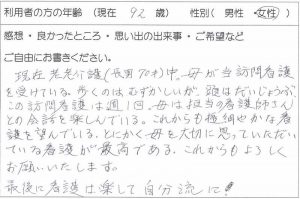 利用者の方の年齢（現在 92 歳） 性別（ 男性 ・ 女性 ）
感想・良かったところ・思い出の出来事・ご希望など
ご自由にお書きください。
現在老老介護（長男70才）中。母が当訪問看護
を受けている。歩くのはむずかしいが、頭はだいじょうぶ
この訪問看護は週1回。母は担当の看護師さん
との会話を楽しんでいる。これからも極細やかな看
護を望んでいる。とにかく母を大切に思っていただい
ている看護が最高である。これからもよろしく
お願いいたします。
最後に看護は楽して自分流に！